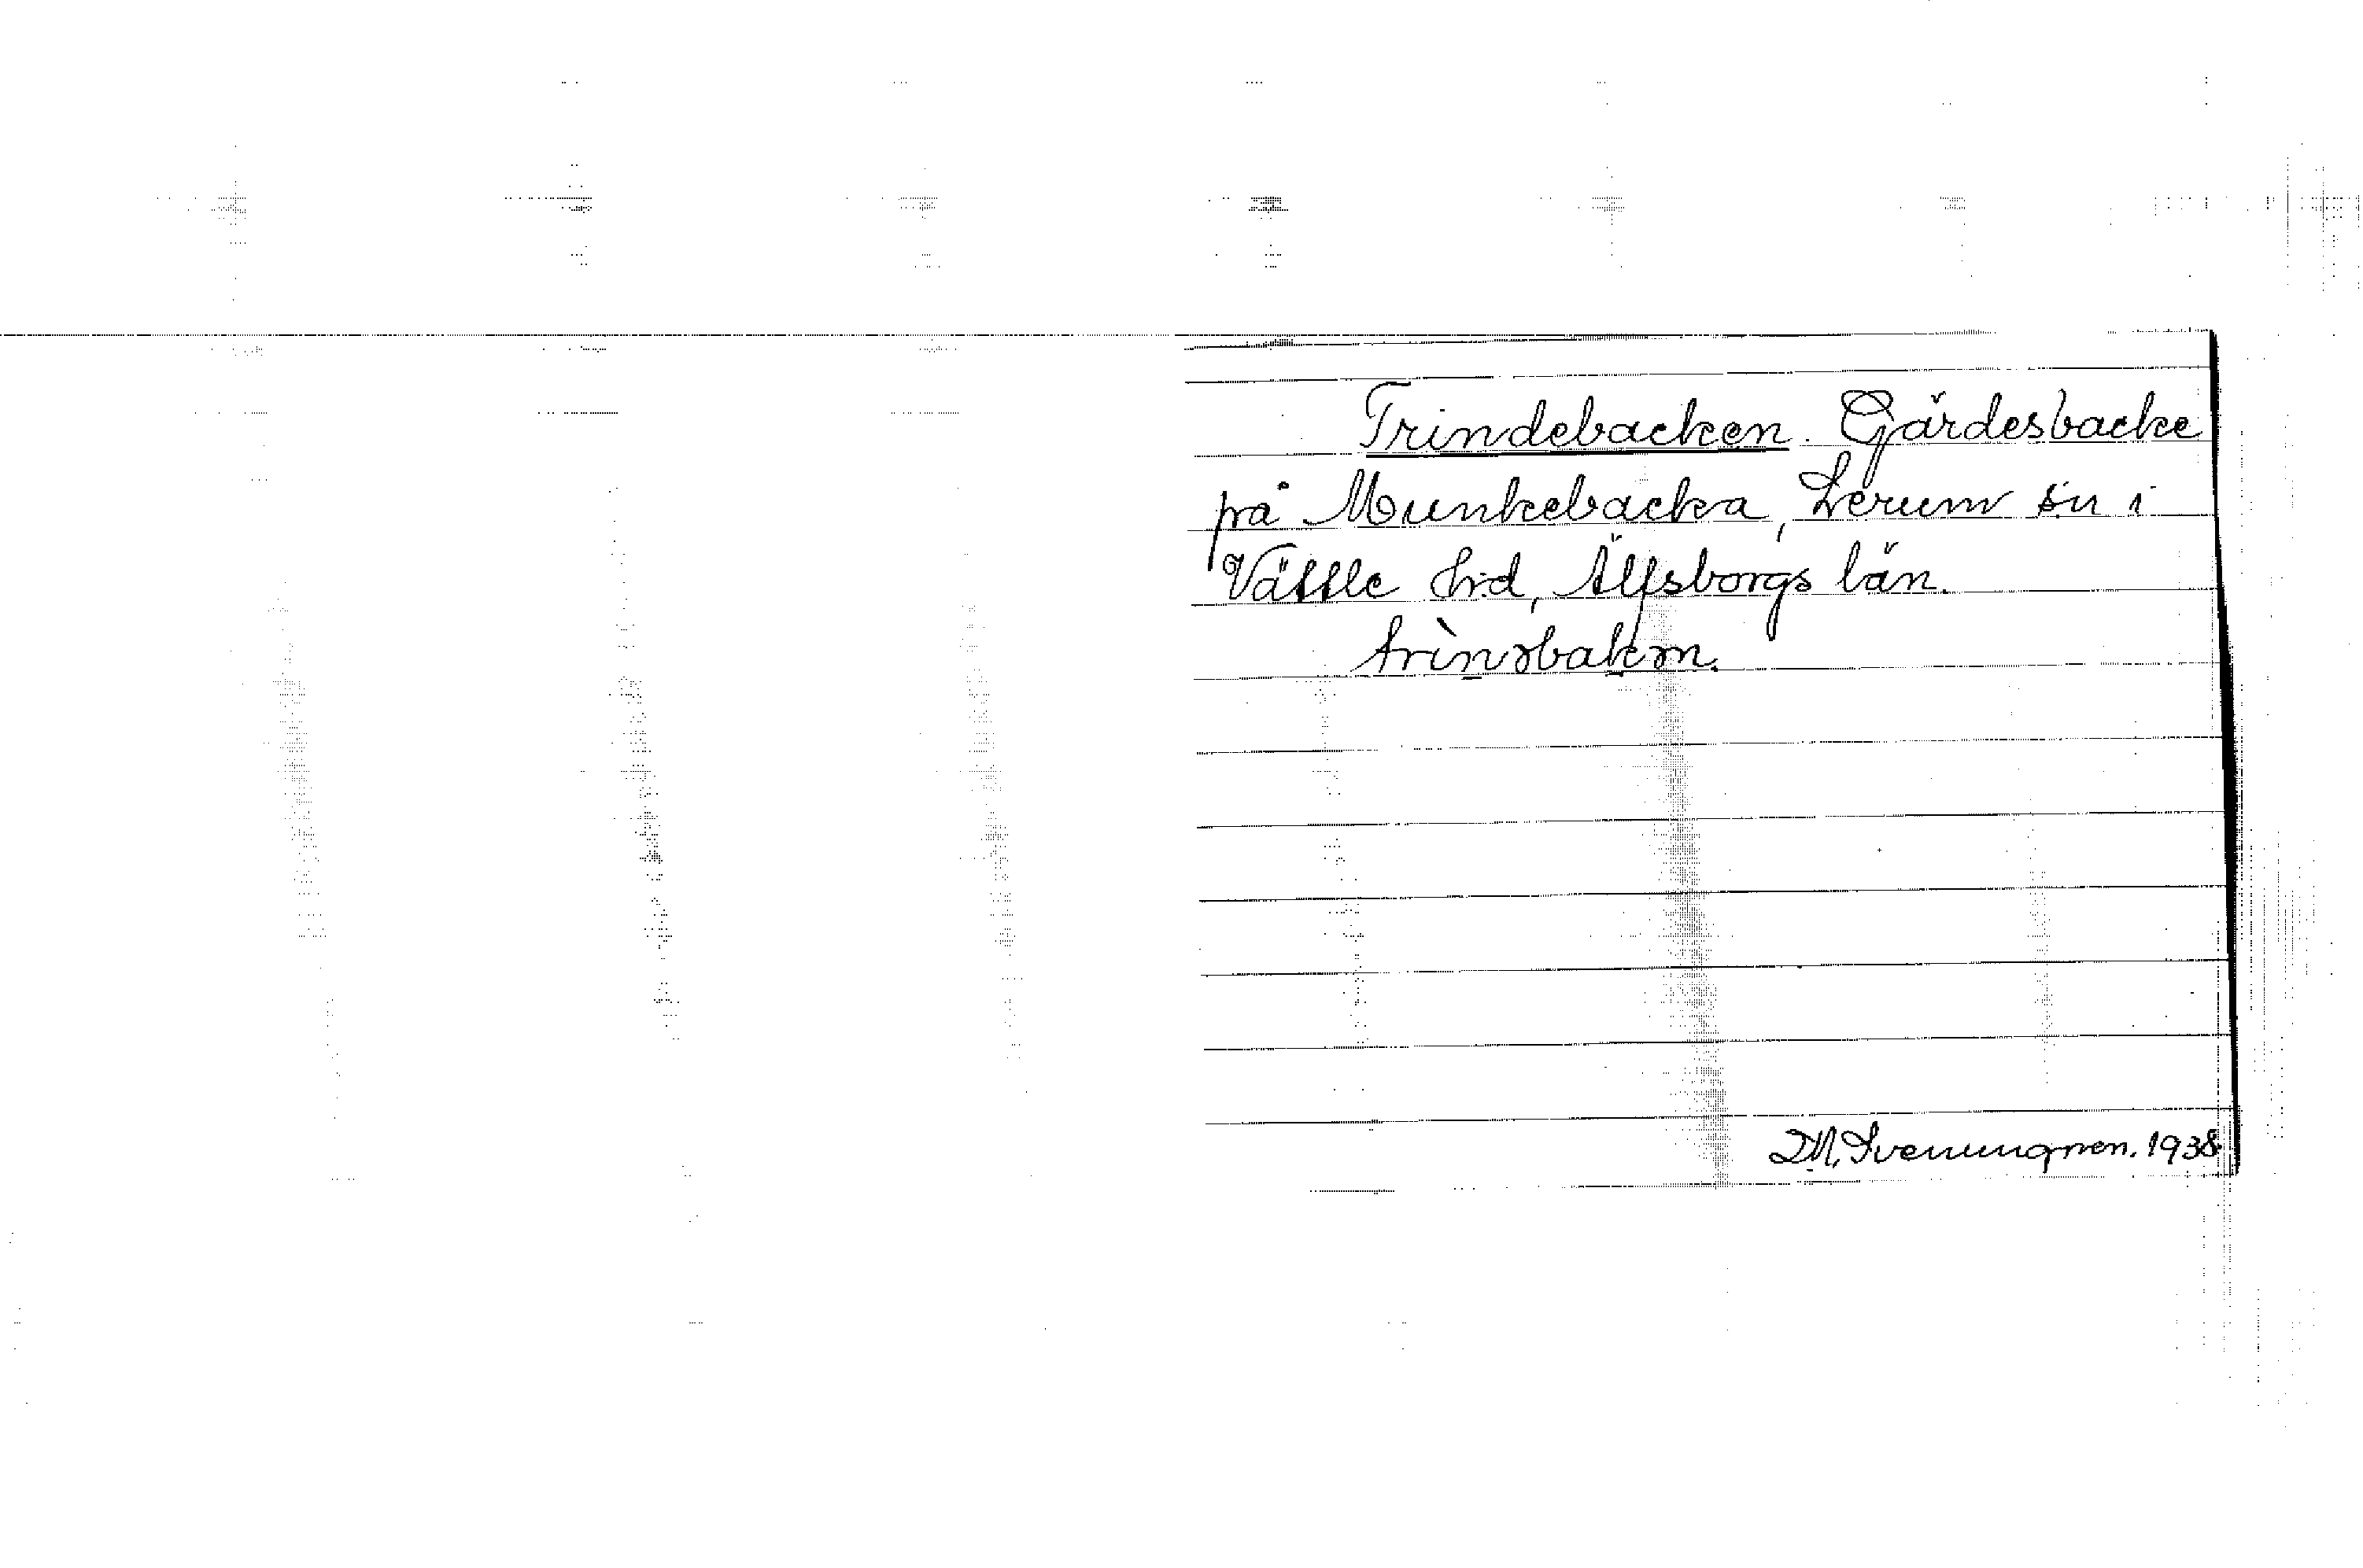 Trindebacken. Gärdesbacke
på Munkebacka, Lerum sn i
Vättle hd, Älfsborgs län.
trìnəbakən.
D.M. Svenungsson. 1938